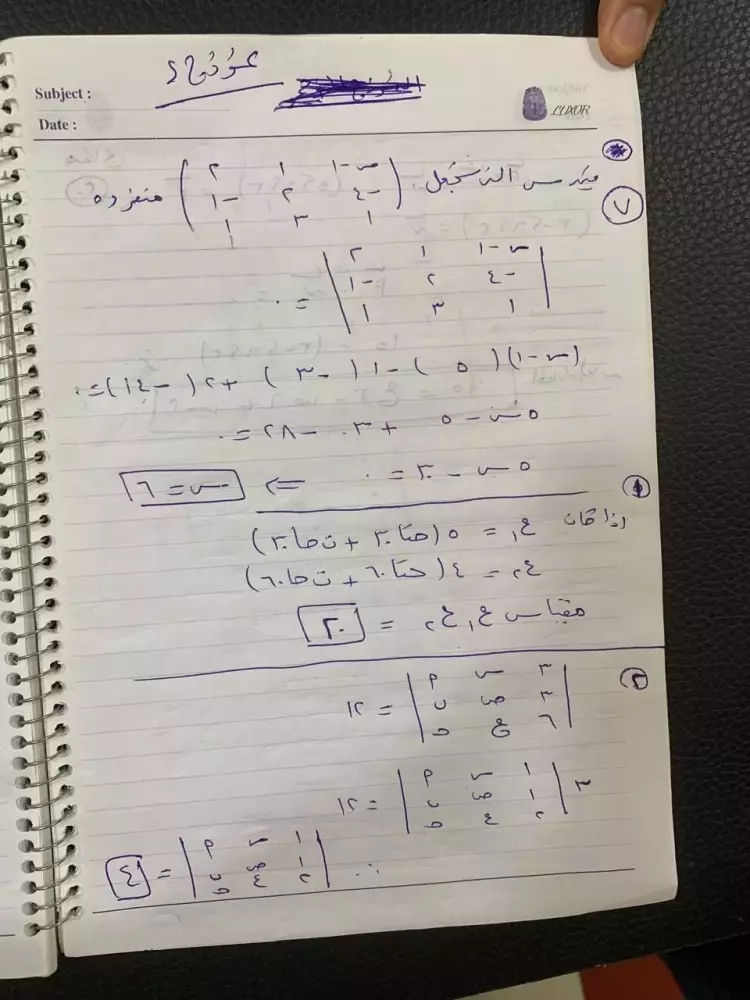 Subject :
Date :
LUXOR
٧ قيمة س التى تجعل
س-١ ١ ٢
-٤ ٢ -١
١ ٣ ١
منفرده
س-١ ١ ٢
-٤ ٢ -١
١ ٣ ١
= ٠
(س-١)(٥) - ١(-٣) + ٢(-١٤) = ٠
٥س - ٥ + ٣ - ٢٨ = ٠
٥س - ٣٠ = ٠ ⇐ س = ٦
١
اذا كان ع١ = ٥(حتا٣٠ + ت حا٣٠)
ع٢ = ٤(حتا٦٠ + ت حا٦٠)
مقياس ع١ ع٢ = ٢٠
٢
٣ س م
٣ ص ب
٦ ع حـ
= ١٢
٣
١ س م
١ ص ب
٢ ع حـ
= ١٢
∴
١ س م
١ ص ب
٢ ع حـ
= ٤